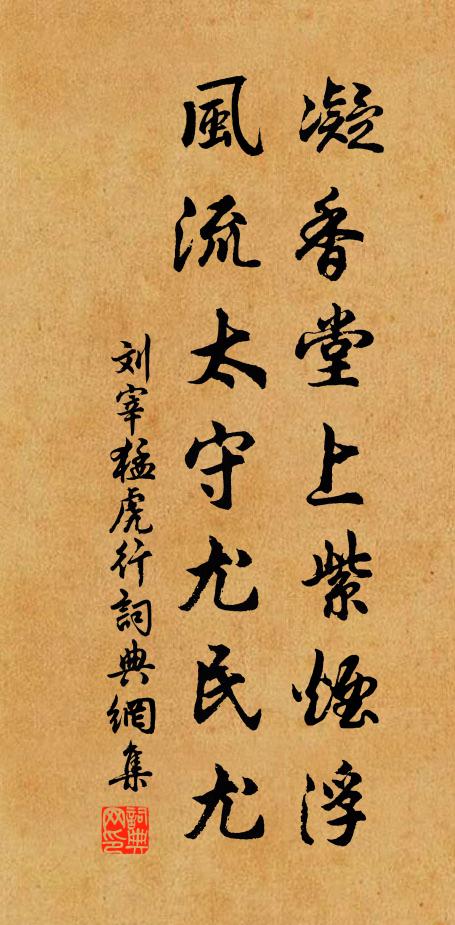 凝香堂上紫煙浮
風流太守尤民尤
刘宰猛虎行詞典網集
詞典網印